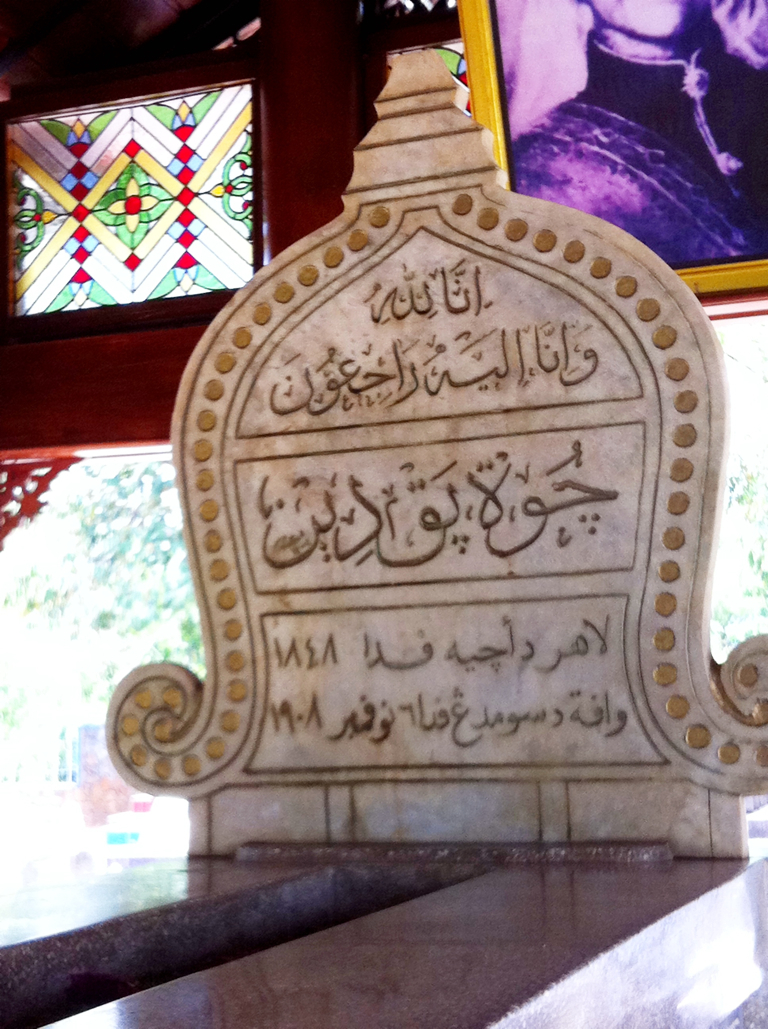 اِنَّا لِلّٰهِ
وَاِنَّا اِلَيْهِ رَاجِعُوْنَ
چُوْة پَوْ ادِيْن
لاهر دأچيه فدا ١٨٤٨
وافة دسومدڠ فدا ٦ نوفمبر ١٩٠٨